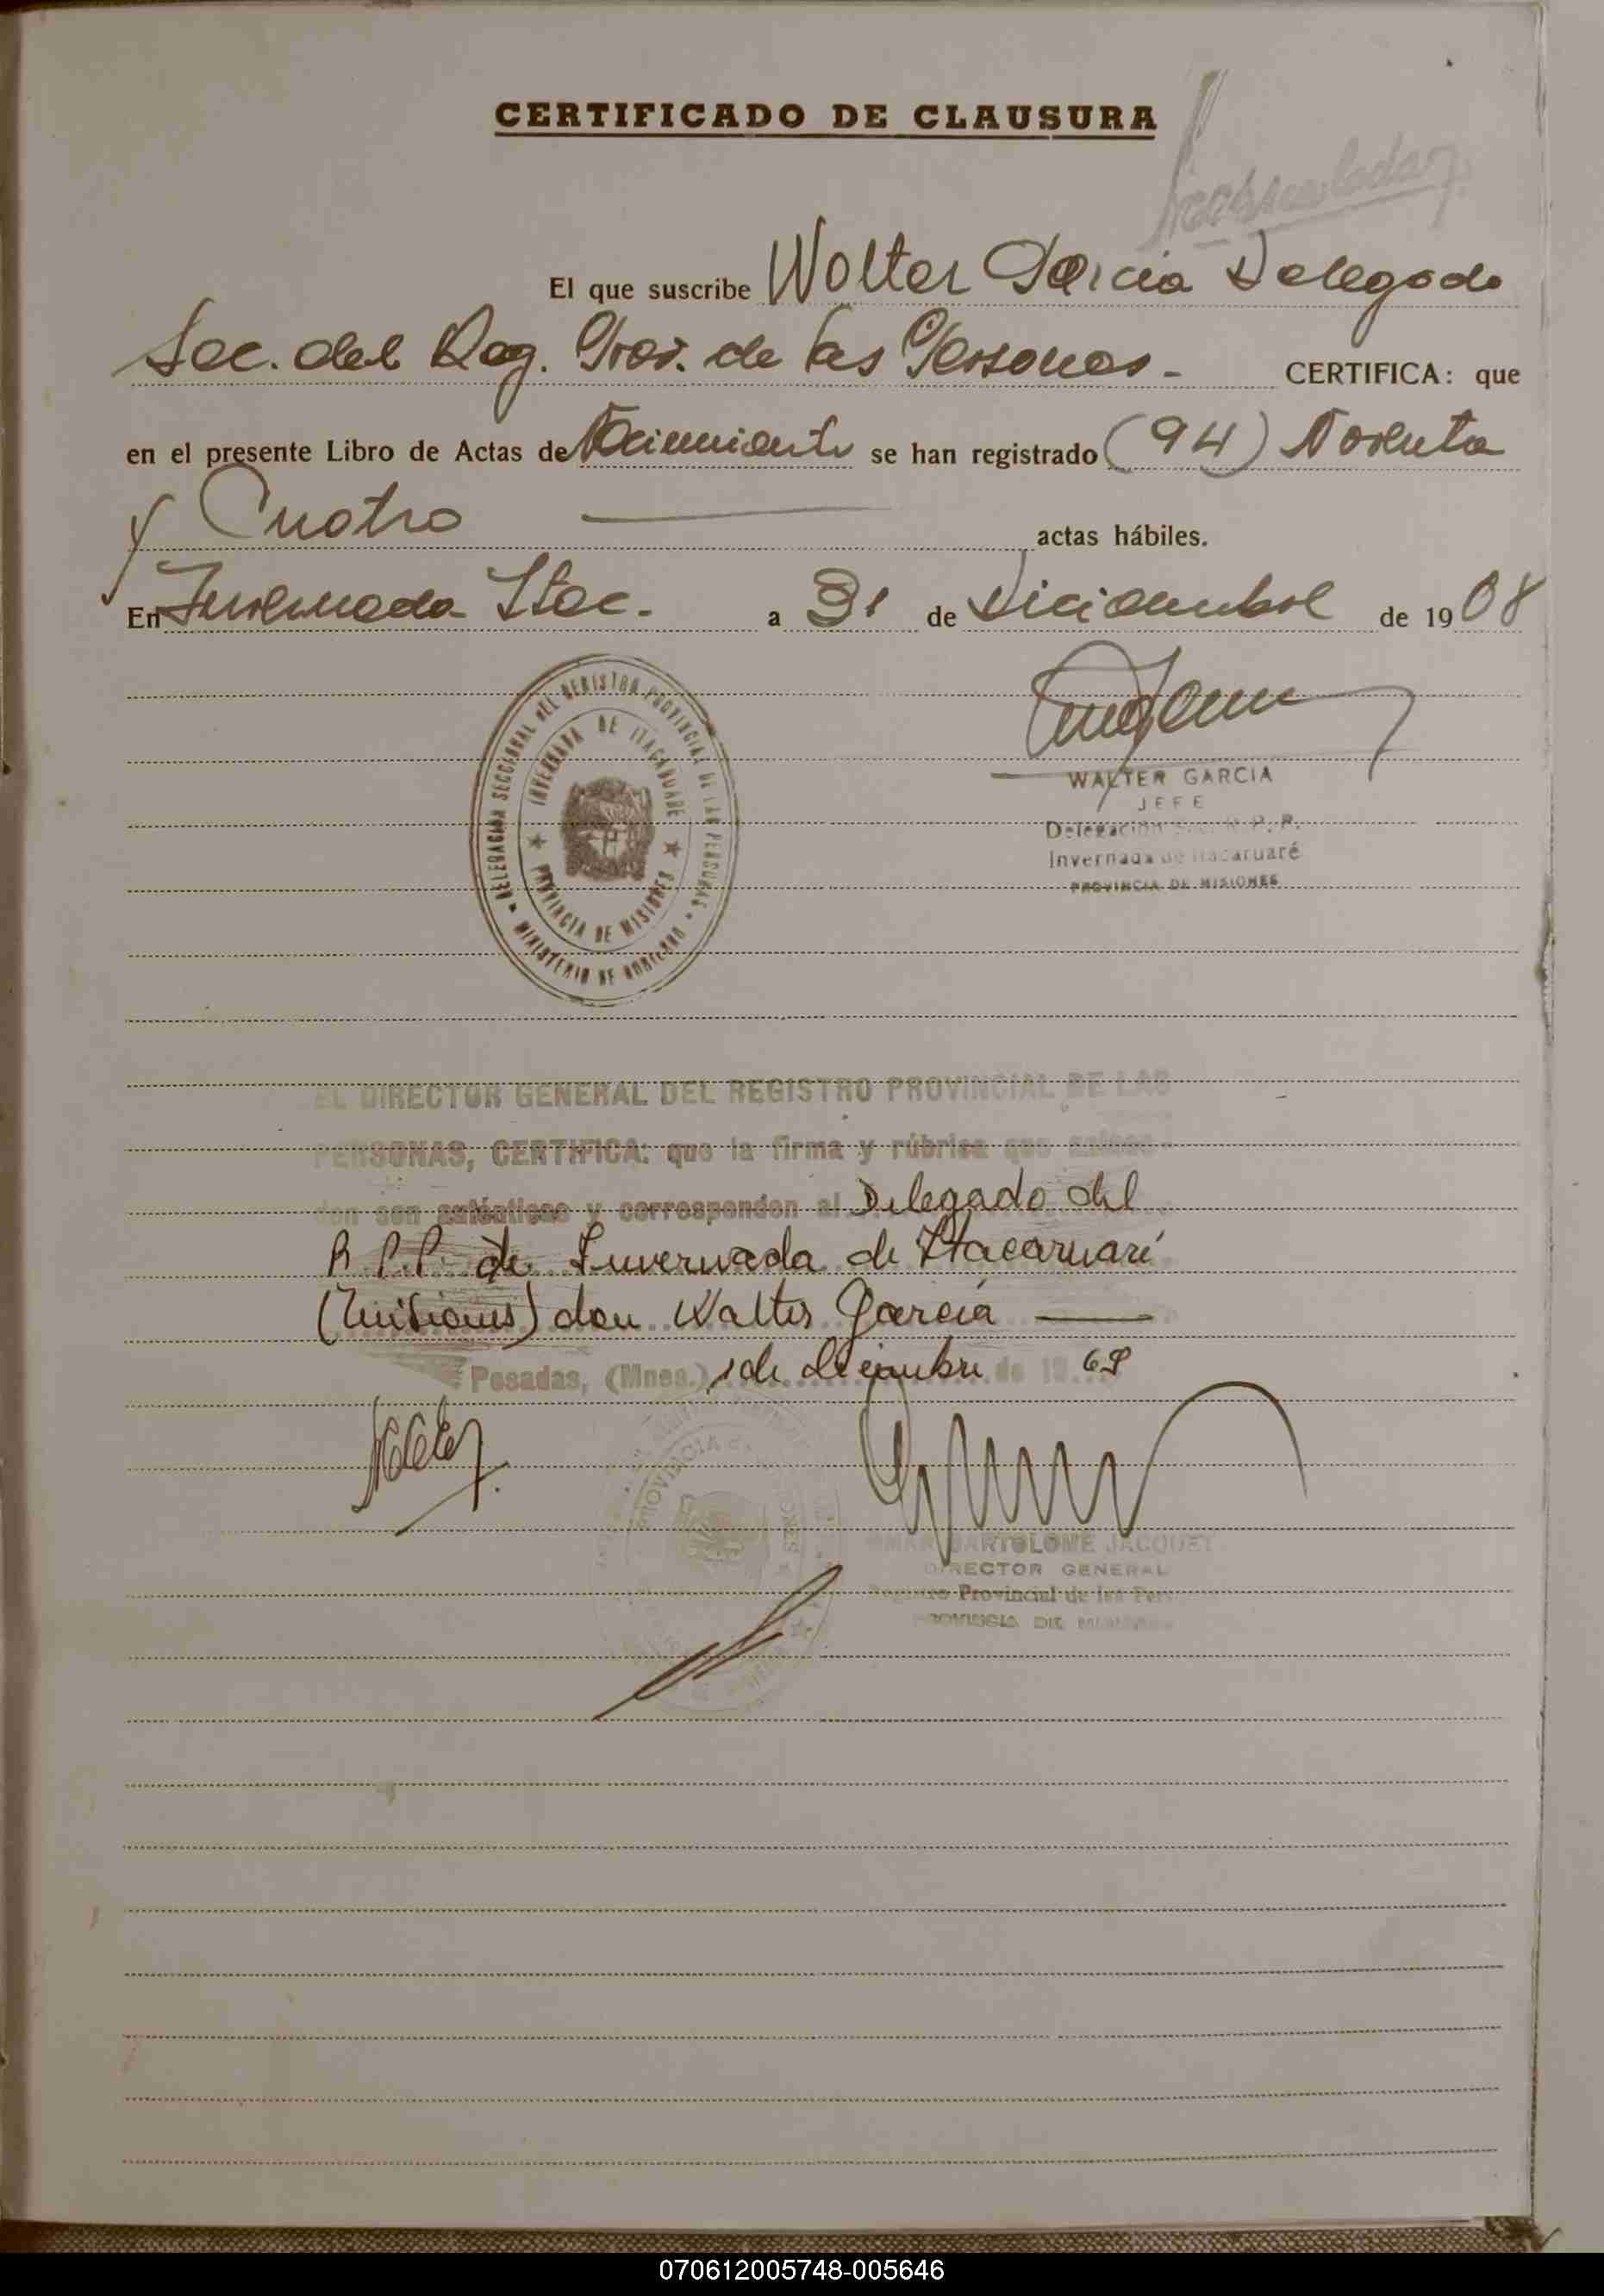 CERTIFICADO DE CLAUSURA
El que suscribe Walter Garcia Delegado
Sec. del Reg. Prov. de las Personas - CERTIFICA: que
en el presente Libro de Actas de Nacimiento se han registrado (94) Noventa
y Cuatro actas hábiles.
En Invernada Itac. a 31 de Diciembre de 1968
DELEGACIÓN SECCIONAL DEL REGISTRO PROVINCIAL DE LAS PERSONAS
MINISTERIO DE GOBIERNO
INVERNADA DE ITACARUARE
PROVINCIA DE MISIONES
WALTER GARCIA
JEFE
Delegación Sec. R. P. P.
Invernada de Itacaruaré
PROVINCIA DE MISIONES
EL DIRECTOR GENERAL DEL REGISTRO PROVINCIAL DE LAS
PERSONAS, CERTIFICA: que la firma y rúbrica que
son auténticas y corresponden al Delegado del
R.P.P. de Invernada de Itacaruaré
(Misiones) don Walter García
Posadas, (Mnes.), de diciembre de 19 68
PROVINCIA
BARTOLOME JACQUET
DIRECTOR GENERAL
Registro Provincial de las Pers
PROVINCIA DE
070612005748-005646